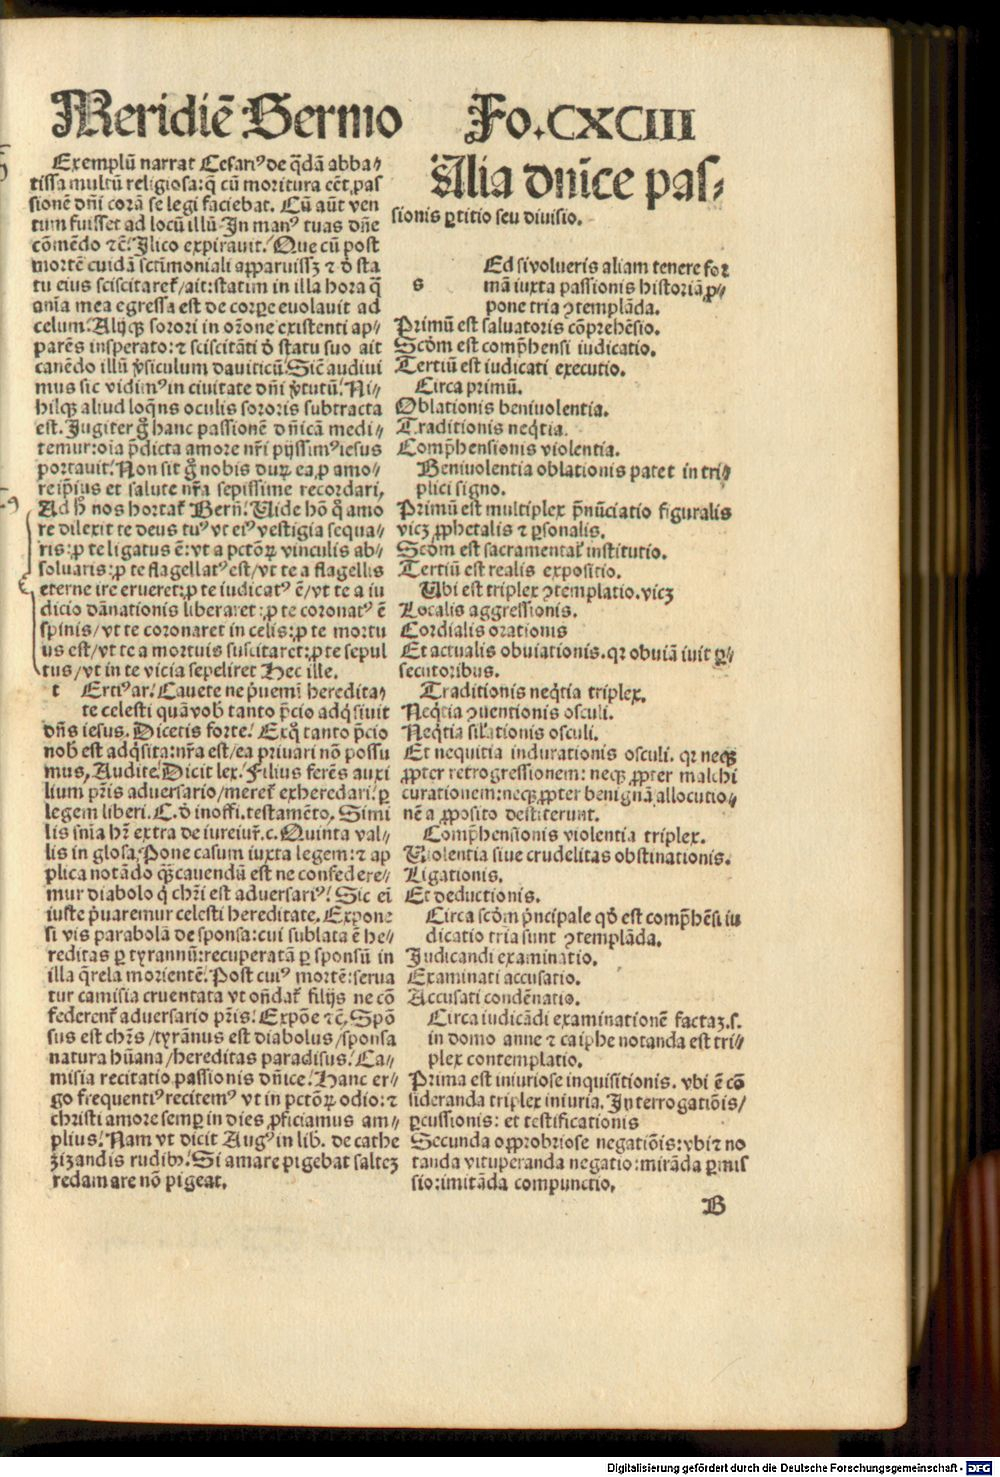 Meridiē Sermo Fo.CXCIII
Exemplū narrat Cesariꝰ de q̄dā abba⸗
tissa multū religiosa: q̄ cū moritura eēt, pas
sionē dn̄i corā se legi faciebat. Cū aūt ven
tum fuisset ad locū illū. In manꝰ tuas dn̄e
cōmēdo ⁊c̄. Ilico expirauit. Que cū post
mortē cuidā sctīmoniali apparuissꝫ ⁊ d̓ sta
tu eius sciscitareť/ait: statim in illa hora q̄
anīa mea egressa est de corꝑe euolauit ad
celum. Alijqꝫ sorori in or̄one existenti ap⸗
parēs insperato: ⁊ sciscitāti d̓ statu suo ait
canēdo illū v̓siculum dauiticū. Sic̄ audiui
mus sic vidimꝰ in ciuitate dn̄i v̓tutū. Ni⸗
hilqꝫ aliud loq̄ns oculis sororis subtracta
est. Iugiter g̊ hanc passionē dn̄icā medi⸗
temur: oīa p̄dicta amore nr̄i pijssimꝰ iesus
portauit. Non sit g̊ nobis durꝝ ea ꝓ amo⸗
re ip̄ius et salute nr̄a sepissime recordari,
Ad h̄ nos hortať Bern̄. Uide hō q̄ amo
re dilexit te deus tuꝰ vt eiꝰ vestigia sequa⸗
ris: ꝓ te ligatus ē: vt a pctōꝝ vinculis ab⸗
soluaris: ꝓ te flagellatꝰ est/vt te a flagellis
eterne ire erueret: ꝓ te iudicatꝰ ē/vt te a iu
dicio dānationis liberaret: ꝓ te coronatꝰ ē
spinis/vt te coronaret in celis: ꝓ te mortu
us est/vt te a mortuis suscitaret: ꝓ te sepul
tus/vt in te vicia sepeliret Hec ille.
t Ertiꝰ ar. Cauete ne p̄uemī heredita⸗
te celesti quā vob̄ tanto p̄cio adq̄siuit
dn̄s iesus. Dicetis forte. Exq̄ tanto p̄cio
nob̄ est adq̄sita: nr̄a est/ea priuari nō possu
mus, Audite. Dicit lex. Filius ferēs auxi
lium pr̄is aduersario/mereť exheredari. ꝑ
legem liberi. C. d̓ inoffi. testamēto. Simi
lis sn̄ia hr̄ extra de iureiur̄. c. Quinta val⸗
lis in glosa. Pone casum iuxta legem: ⁊ ap
plica notādo qꝫ cauendū est ne confedere⸗
mur diabolo q̓ chr̄i est aduersariꝰ. Sic ei
iuste p̓uaremur celesti hereditate. Expone
si vis parabolā de sponsa: cui sublata ē he⸗
reditas ꝑ tyrannū: recuperatā ꝑ sponsū in
illa q̄rela morientē. Post cuiꝰ mortē: serua
tur camisia cruentata vt on̄dať filijs ne cō
federenť aduersario pr̄is. Expōe ⁊c̄. Spō
sus est chr̄s/tyrānus est diabolus/sponsa
natura hūana/hereditas paradisus. Ca⸗
misia recitatio passionis dn̄ice. Hanc er⸗
go frequentiꝰ recitemꝰ vt in pctōꝝ odio: ⁊
christi amore semꝑ in dies ꝓficiamus am⸗
plius. Nam vt dicit Augꝰ in lib. de cathe
zizandis rudibꝰ. Si amare pigebat saltez
redamare nō pigeat.
Alia dnīce pas⸗
sionis ꝑtitio seu diuisio.
s Ed si volueris aliam tenere for
mā iuxta passionis historiā ꝓ⸗
pone tria ꝯtemplāda.
Primū est saluatoris cōprehēsio.
Scd̓m est comp̄hensi iudicatio.
Tertiū est iudicati executio.
Circa primū.
Oblationis beniuolentia.
Traditionis neq̄tia.
Comp̄hensionis violentia.
Beniuolentia oblationis patet in tri⸗
plici signo.
Primū est multiplex p̄nūciatio figuralis
vicꝫ ꝓphetalis ⁊ ꝑsonalis.
Scd̓m est sacramentaľ institutio.
Tertiū est realis expositio.
Ubi est triplex ꝯtemplatio. vicꝫ
Localis aggressionis.
Cordialis orationis
Et actualis obuiationis. qꝛ obuiā iuit ꝑ⸗
secutoribus.
Traditionis neq̄tia triplex.
Neq̄tia ꝯuentionis osculi.
Neq̄tia silͣationis osculi.
Et nequitia indurationis osculi. qꝛ neqꝫ
ꝓpter retrogressionem: neqꝫ ꝓpter malchi
curationem: neqꝫ ꝓpter benignā allocutio⸗
nē a ꝓposito destiterunt.
Comp̄hensionis violentia triplex.
Uiolentia siue crudelitas obstinationis.
Ligationis.
Et deductionis.
Circa scd̓m p̓ncipale qd̓ est comp̄hēsi iu
dicatio tria sunt ꝯtemplāda.
Iudicandi examinatio.
Examinati accusatio.
Accusati condēnatio.
Circa iudicādi examinationē factaꝫ .s.
in domo anne ⁊ caiphe notanda est tri⸗
plex contemplatio.
Prima est iniuriose inquisitionis. vbi ē cō
sideranda triplex iniuria. Interrogatiōis/
ꝑcussionis: et testificationis
Secunda opprobriose negatiōis: vbi ⁊ no
tanda vituperanda negatio: mirāda ꝑmis
sio: imitāda compunctio.
B
Digitalisierung gefördert durch die Deutsche Forschungsgemeinschaft - DFG